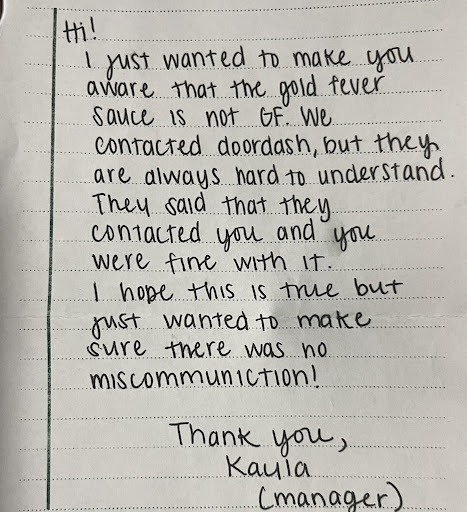 Hi!
I just wanted to make you
aware that the gold fever
sauce is not GF. We
contacted doordash, but they
are always hard to understand.
They said that they
contacted you and you
were fine with it.
I hope this is true but
just wanted to make
sure there was no
miscommuniction!
Thank you,
Kayla
(manager)